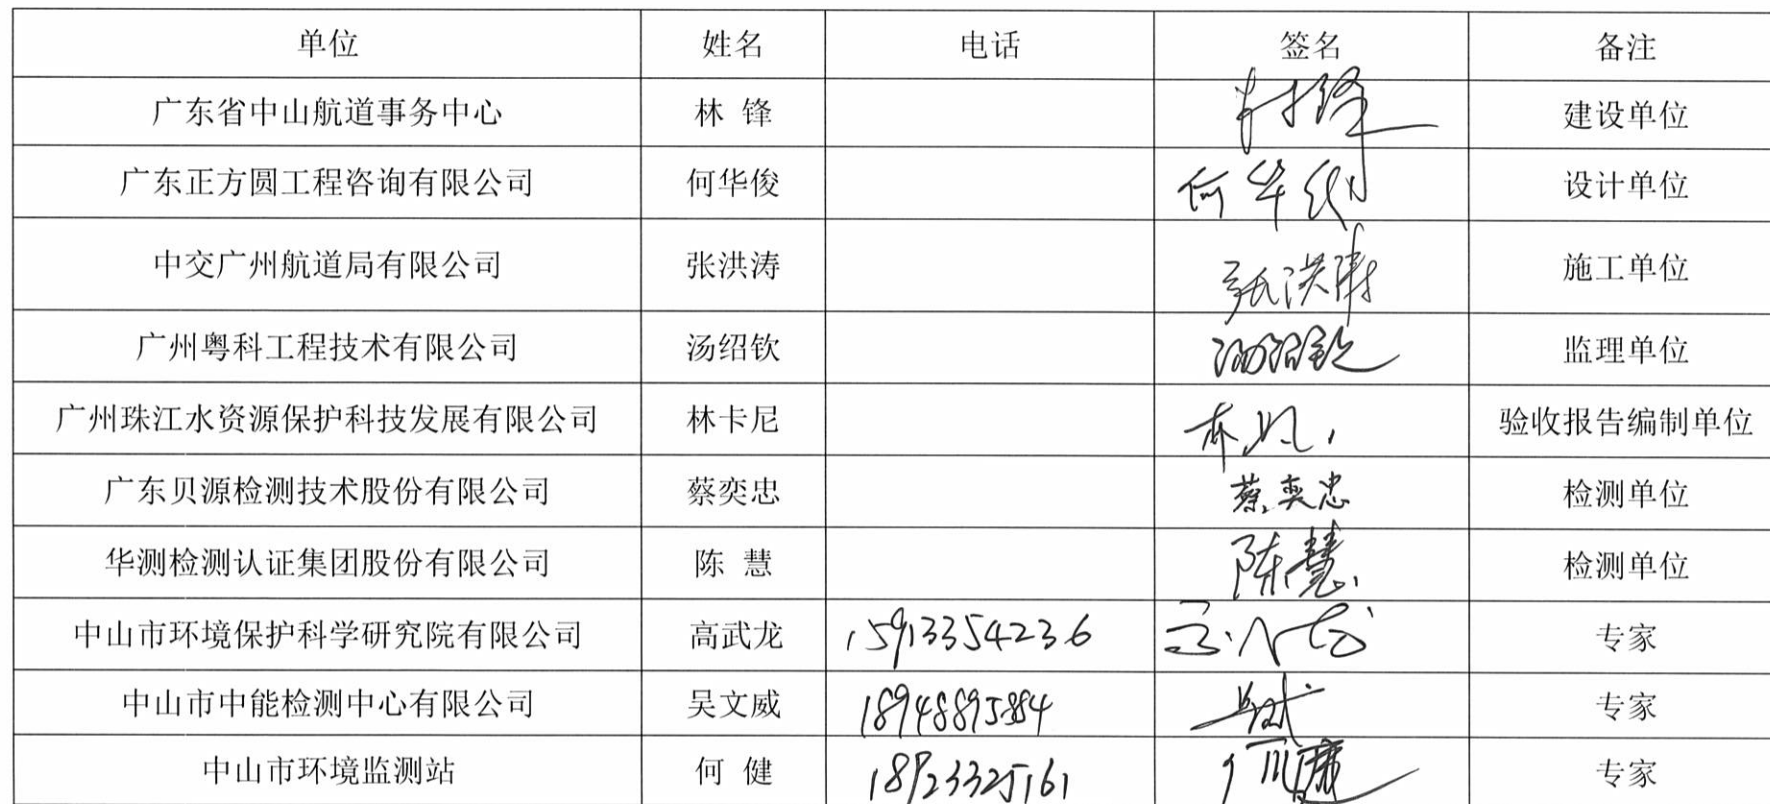 单位 姓名 电话 签名 备注
广东省中山航道事务中心 林 锋 林锋 建设单位
广东正方圆工程咨询有限公司 何华俊 何华俊 设计单位
中交广州航道局有限公司 张洪涛 张洪涛 施工单位
广州粤科工程技术有限公司 汤绍钦 汤绍钦 监理单位
广州珠江水资源保护科技发展有限公司 林卡尼 验收报告编制单位
广东贝源检测技术股份有限公司 蔡奕忠 蔡奕忠 检测单位
华测检测认证集团股份有限公司 陈 慧 陈慧 检测单位
中山市环境保护科学研究院有限公司 高武龙 15913354236 专家
中山市中能检测中心有限公司 吴文威 专家
中山市环境监测站 何 健 何健 专家